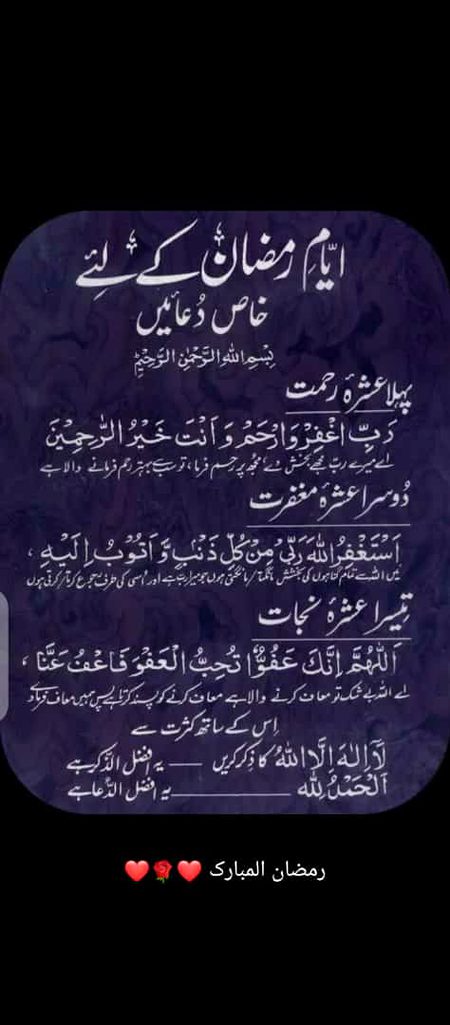 ایّامِ رمضان کے لئے
خاص دُعائیں
بِسْمِ اللهِ الرَّحْمٰنِ الرَّحِيْمِ
پہلا عشرۂ رحمت
رَبِّ اغْفِرْ وَارْحَمْ وَاَنْتَ خَيْرُ الرّٰحِمِيْنَ
اے میرے ربّ مجھے بخش دے مجھ پر رحم فرما، تو سب سے بہتر رحم فرمانے والا ہے
دُوسرا عشرۂ مغفرت
اَسْتَغْفِرُ اللهَ رَبِّيْ مِنْ كُلِّ ذَنْبٍ وَّاَتُوْبُ اِلَيْهِ ،
میں اللہ سے تمام گناہوں کی بخشش مانگتا / مانگتی ہوں جو میرا رب ہے اور اُسی کی طرف رجوع کرتا / کرتی ہوں
تیسرا عشرۂ نجات
اَللّٰهُمَّ اِنَّكَ عَفُوٌّ تُحِبُّ الْعَفْوَ فَاعْفُ عَنَّا ،
اے اللہ بے شک تو معاف کرنے والا ہے معاف کرنے کو پسند کرتا ہے پس ہمیں معاف فرما دے
اِس کے ساتھ کثرت سے
لَآ اِلٰهَ اِلَّا اللهُ کا ذکر کریں — یہ افضل الذّکر ہے
اَلْحَمْدُ لِلّٰهِ — یہ افضل الدّعا ہے
رمضان المبارک ❤️🌹❤️